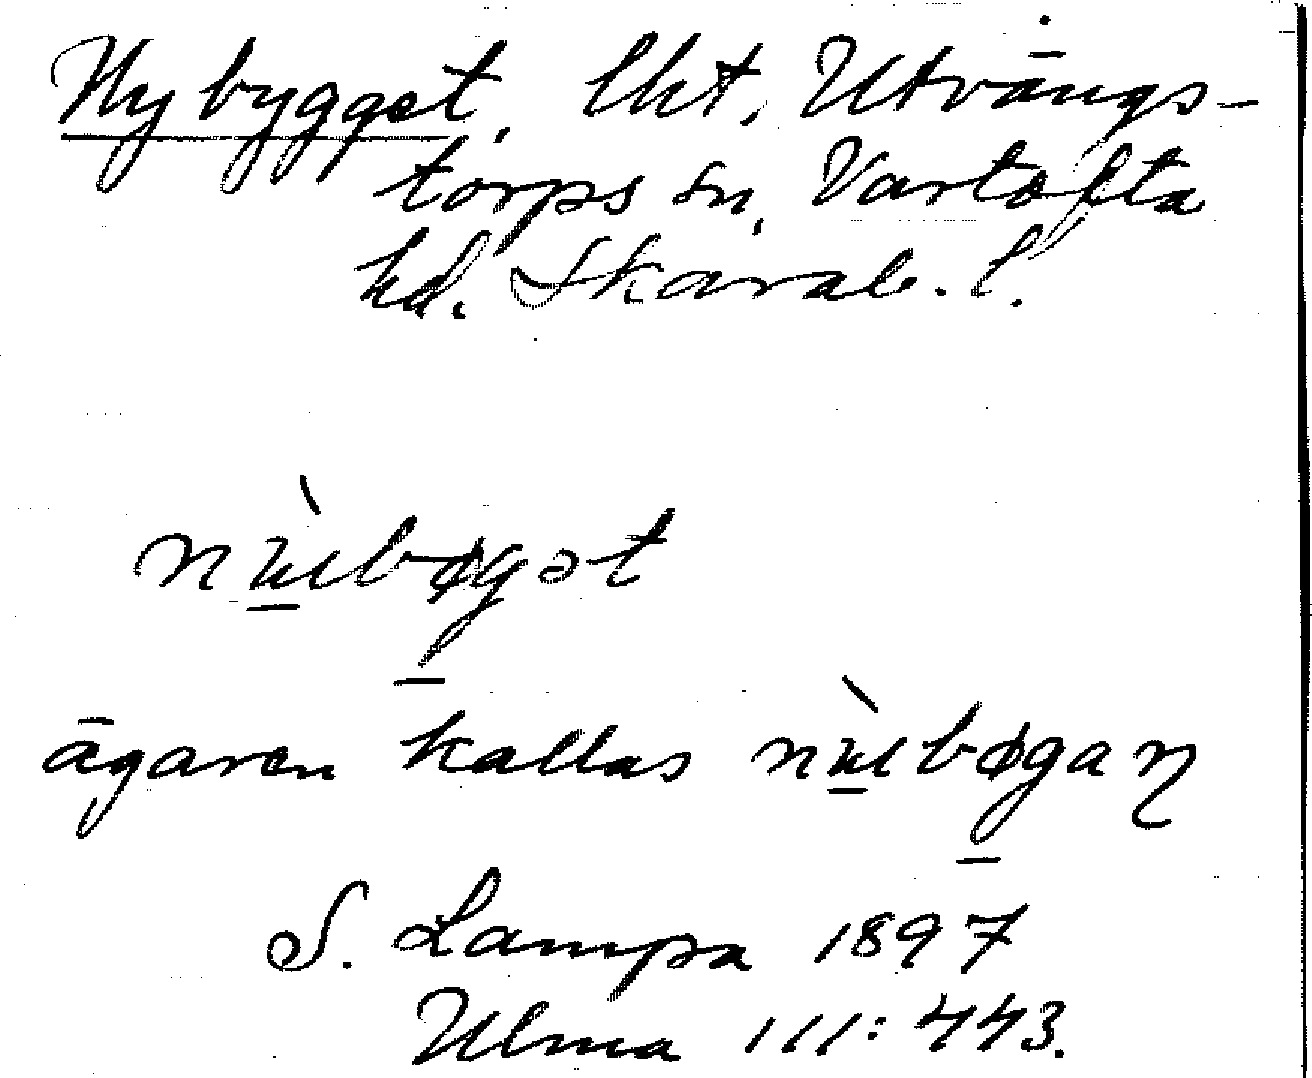 Nybygget, lht, Utvängs-
torps sn, Vartofta
hd. Skarab. l.
nɯ̀bøgət
ägaren kallas nɯ̀bøgaɳ
S. Lampa 1897
Ulma 111: 443.